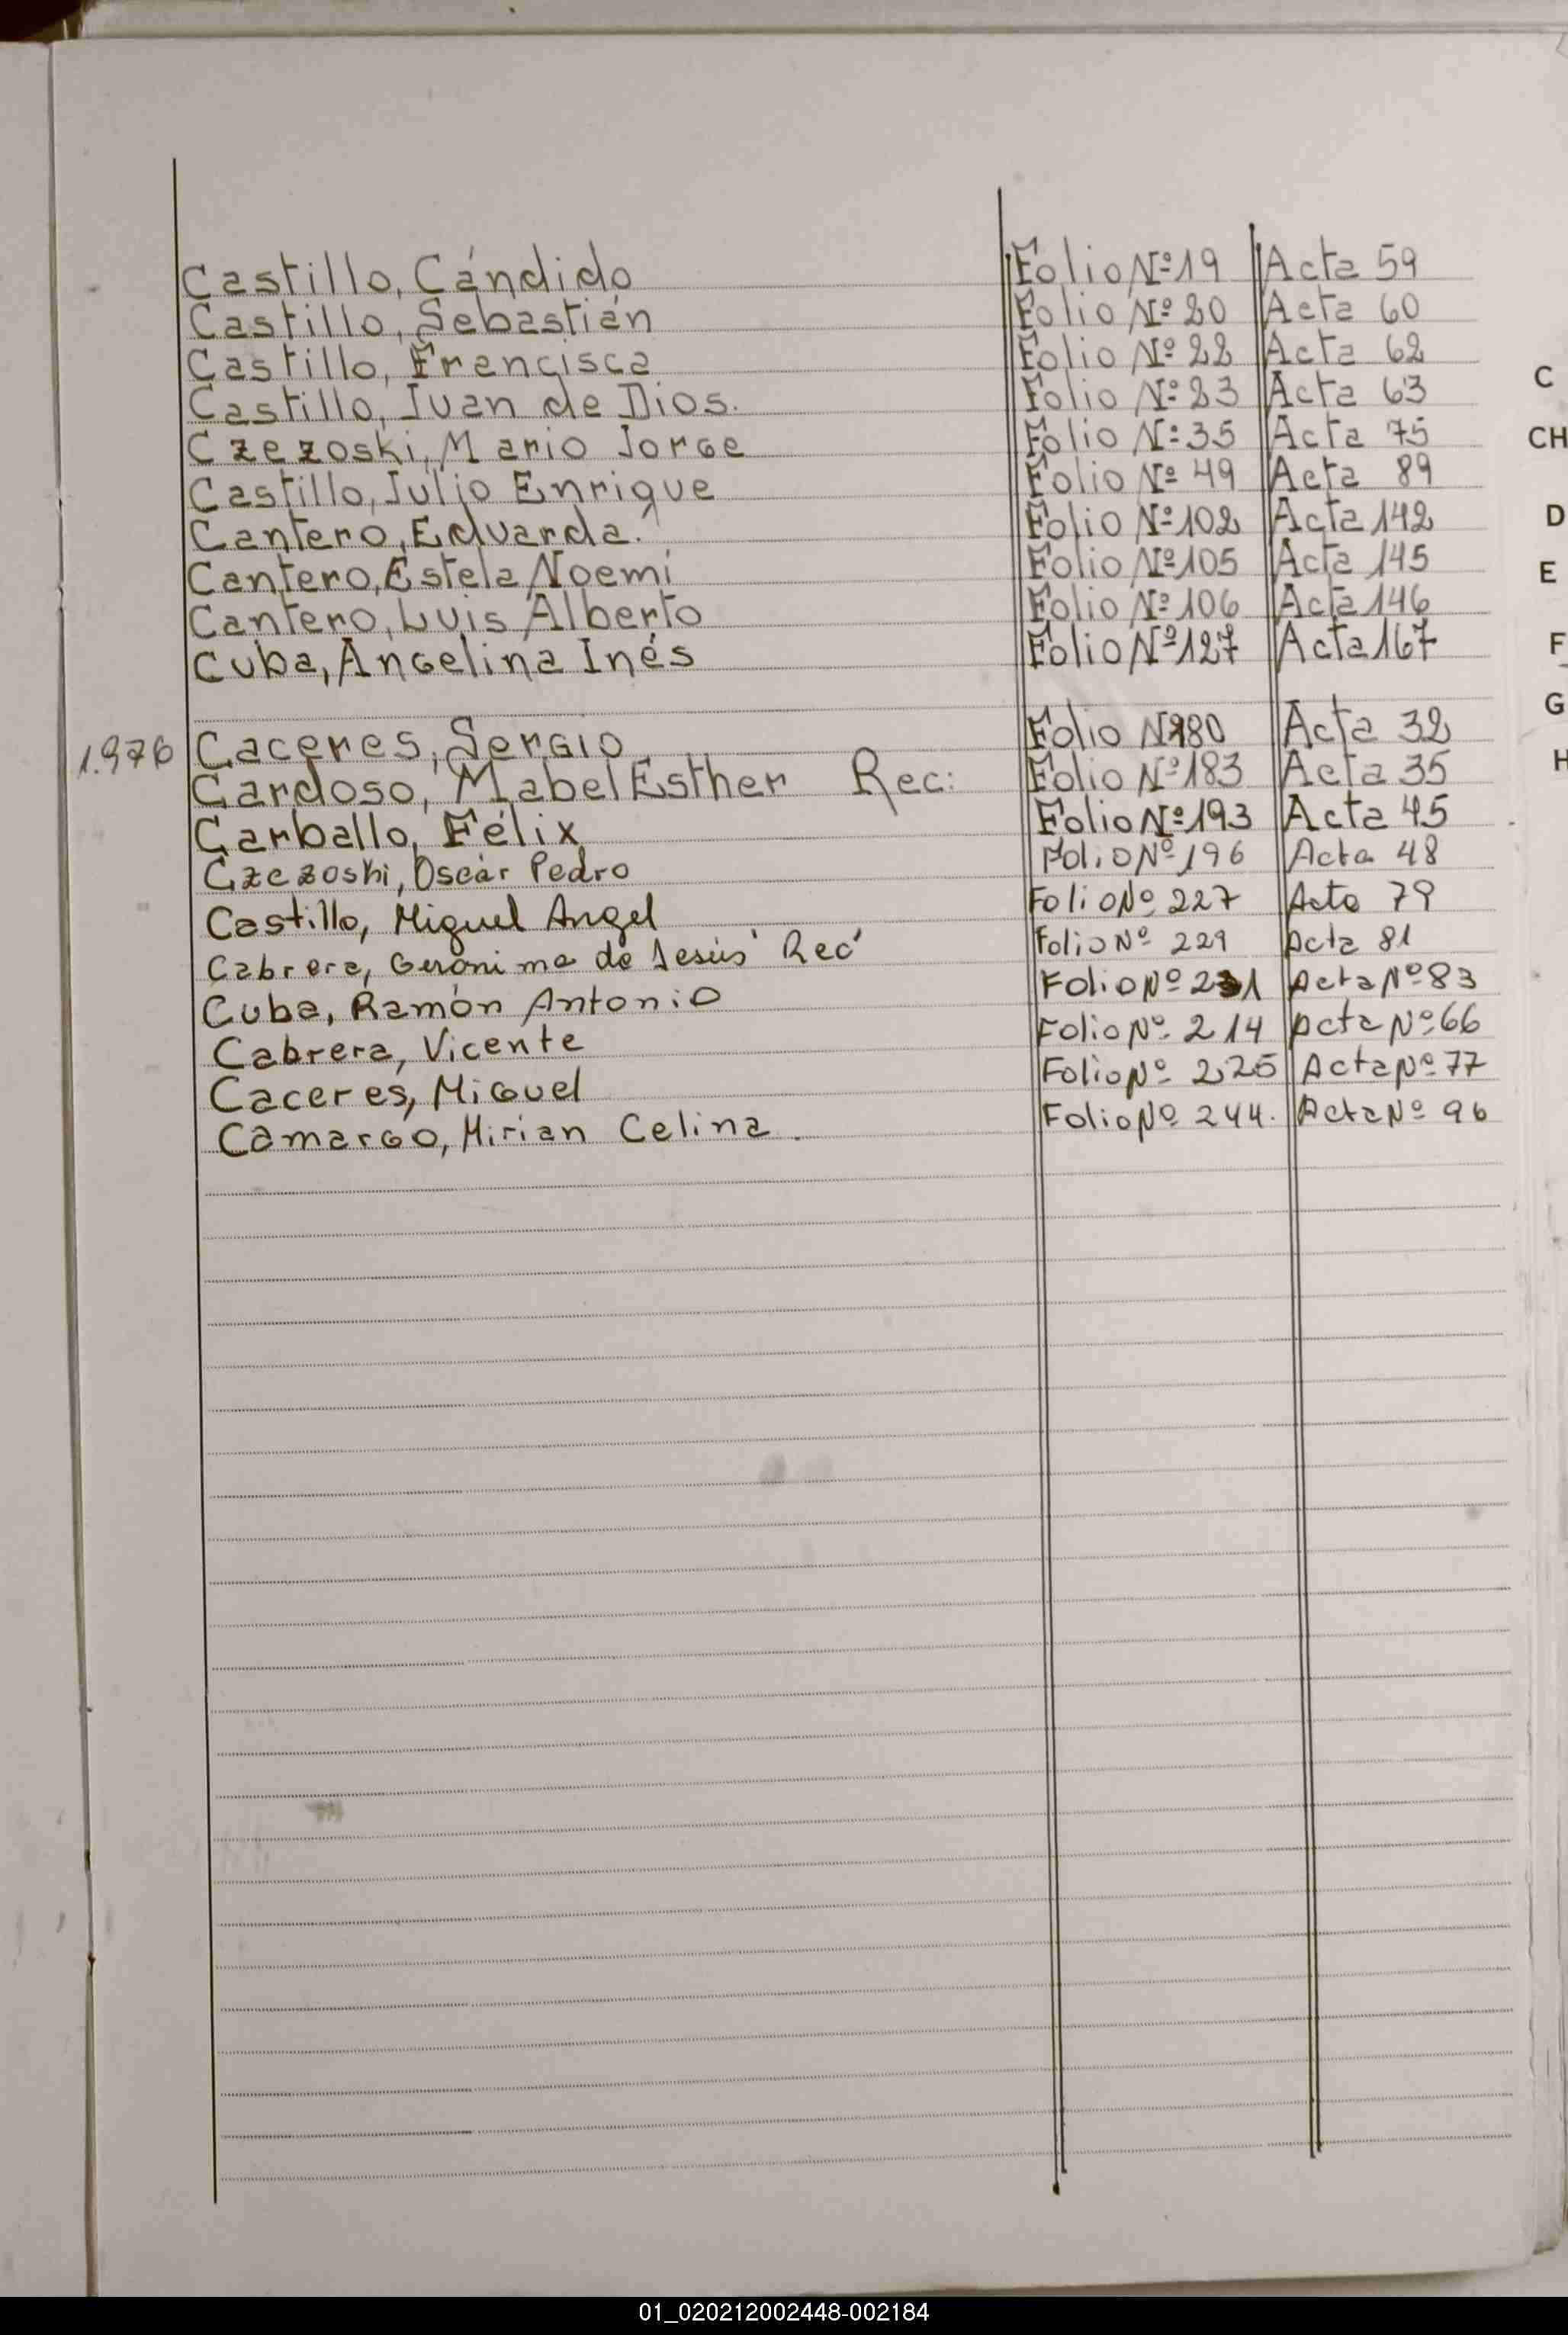 Castillo, Cándido Folio Nº 19 Acta 59
Castillo, Sebastián Folio Nº 20 Acta 60
Castillo, Francisca Folio Nº 22 Acta 62
Castillo, Juan de Dios. Folio Nº 23 Acta 63
Czezoski, Mario Jorge Folio Nº 35 Acta 75
Castillo, Julio Enrique Folio Nº 49 Acta 89
Cantero, Eduarda. Folio Nº 102 Acta 142
Cantero, Estela Noemí Folio Nº 105 Acta 145
Cantero, Luis Alberto Folio Nº 106 Acta 146
Cuba, Angelina Inés Folio Nº 127 Acta 167
1.976 Caceres, Sergio Folio Nº180 Acta 32
Cardoso, Mabel Esther Rec: Folio Nº 183 Acta 35
Carballo, Félix Folio Nº 193 Acta 45
Czezoski, Oscar Pedro Folio Nº 196 Acta 48
Castillo, Miguel Angel Folio Nº 227 Acta 79
Cabrera, Geronima de Jesús Rec Folio Nº 229 Acta 81
Cuba, Ramón Antonio Folio Nº 231 Acta Nº 83
Cabrera, Vicente Folio Nº 214 Acta Nº 66
Caceres, Miguel Folio Nº 225 Acta Nº 77
Camargo, Mirian Celina. Folio Nº 244. Acta Nº 96
C
CH
D
E
F
G
H
01_020212002448-002184